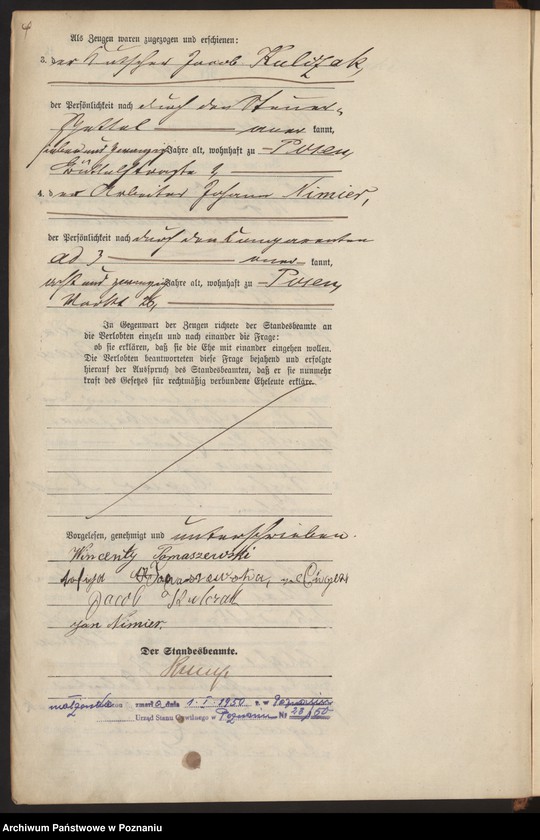 Als Zeugen waren zugezogen und erschienen:
3. der Kutscher Jacob Kulczak,
der Persönlichkeit nach durch den Steuer-
Zettel aner kannt,
sieben und zwanzig Jahre alt, wohnhaft zu Posen
Büttelstraße 9,
4. der Arbeiter Johann Nimier,
der Persönlichkeit nach durch den Komparenten
ad 3 aner kannt,
acht und zwanzig Jahre alt, wohnhaft zu Posen
Markt 26,
In Gegenwart der Zeugen richtete der Standesbeamte an
die Verlobten einzeln und nach einander die Frage:
ob sie erklären, daß sie die Ehe mit einander eingehen wollen.
Die Verlobten beantworteten diese Frage bejahend und erfolgte
hierauf der Ausspruch des Standesbeamten, daß er sie nunmehr
kraft des Gesetzes für rechtmäßig verbundene Eheleute erkläre.
Vorgelesen, genehmigt und unterschrieben.
Wincenty Tomaszewski
Tomaszewska,
Jacob Kulczak
Jan Nimier.
Der Standesbeamte.
małżonka zmarła dnia 1. I. 1950 r. w Poznaniu
Urząd Stanu Cywilnego w Poznaniu Nr 23/50
Archiwum Państwowe w Poznaniu